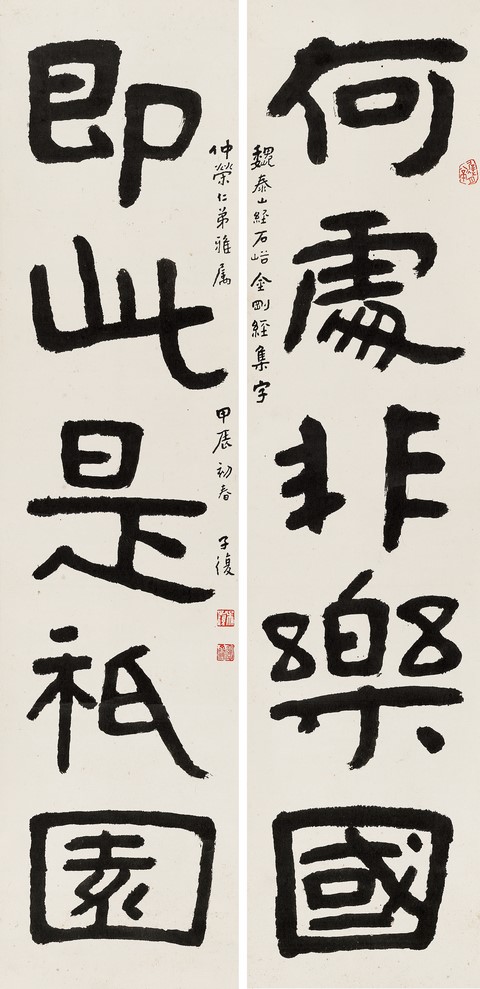 何處非樂國
魏泰山經石峪金剛經集字
即此是祇園
仲榮仁弟雅屬
甲辰初春 子復